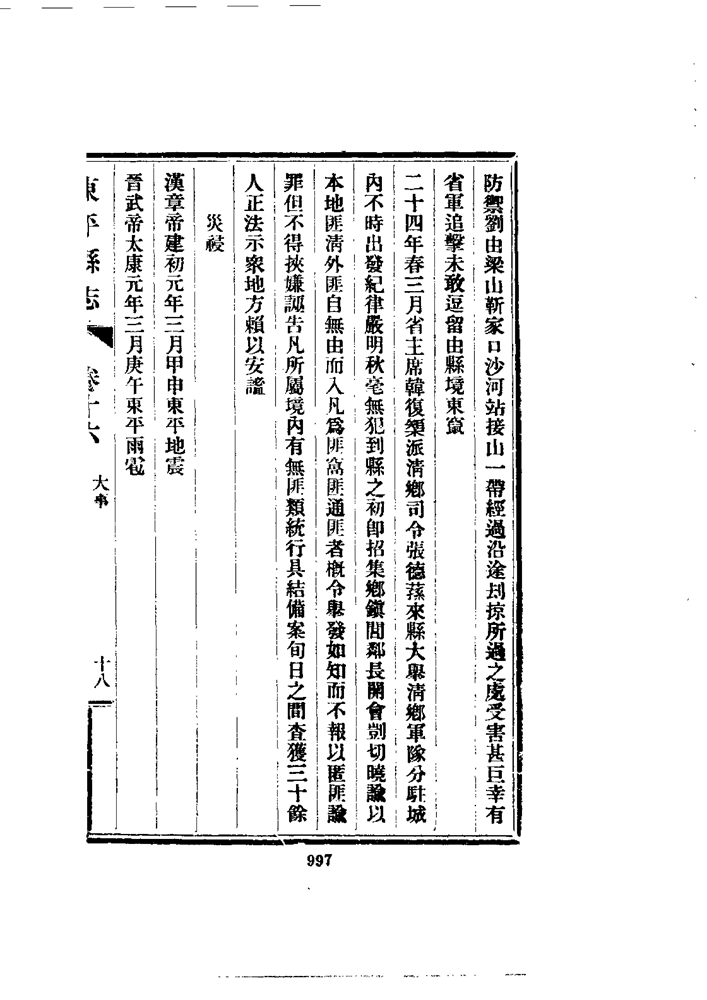 防禦劉由梁山靳家口沙河站接山一帶經過沿途刦掠所過之處受害甚巨幸有
省軍追擊未敢逗留由縣境東竄
二十四年春三月省主席韓復榘派清鄉司令張德蓀來縣大舉清鄉軍隊分駐城
內不時出發紀律嚴明秋毫無犯到縣之初卽招集鄉鎭閭鄰長開會剴切曉諭以
本地匪清外匪自無由而入凡爲匪窩匪通匪者槪令舉發如知而不報以匿匪論
罪但不得挾嫌誣告凡所屬境內有無匪類統行具結備案旬日之間查獲三十餘
人正法示衆地方賴以安謐
災祲
漢章帝建初元年三月甲申東平地震
晉武帝太康元年三月庚午東平雨雹
東平縣志 卷十六 大事 十八
997